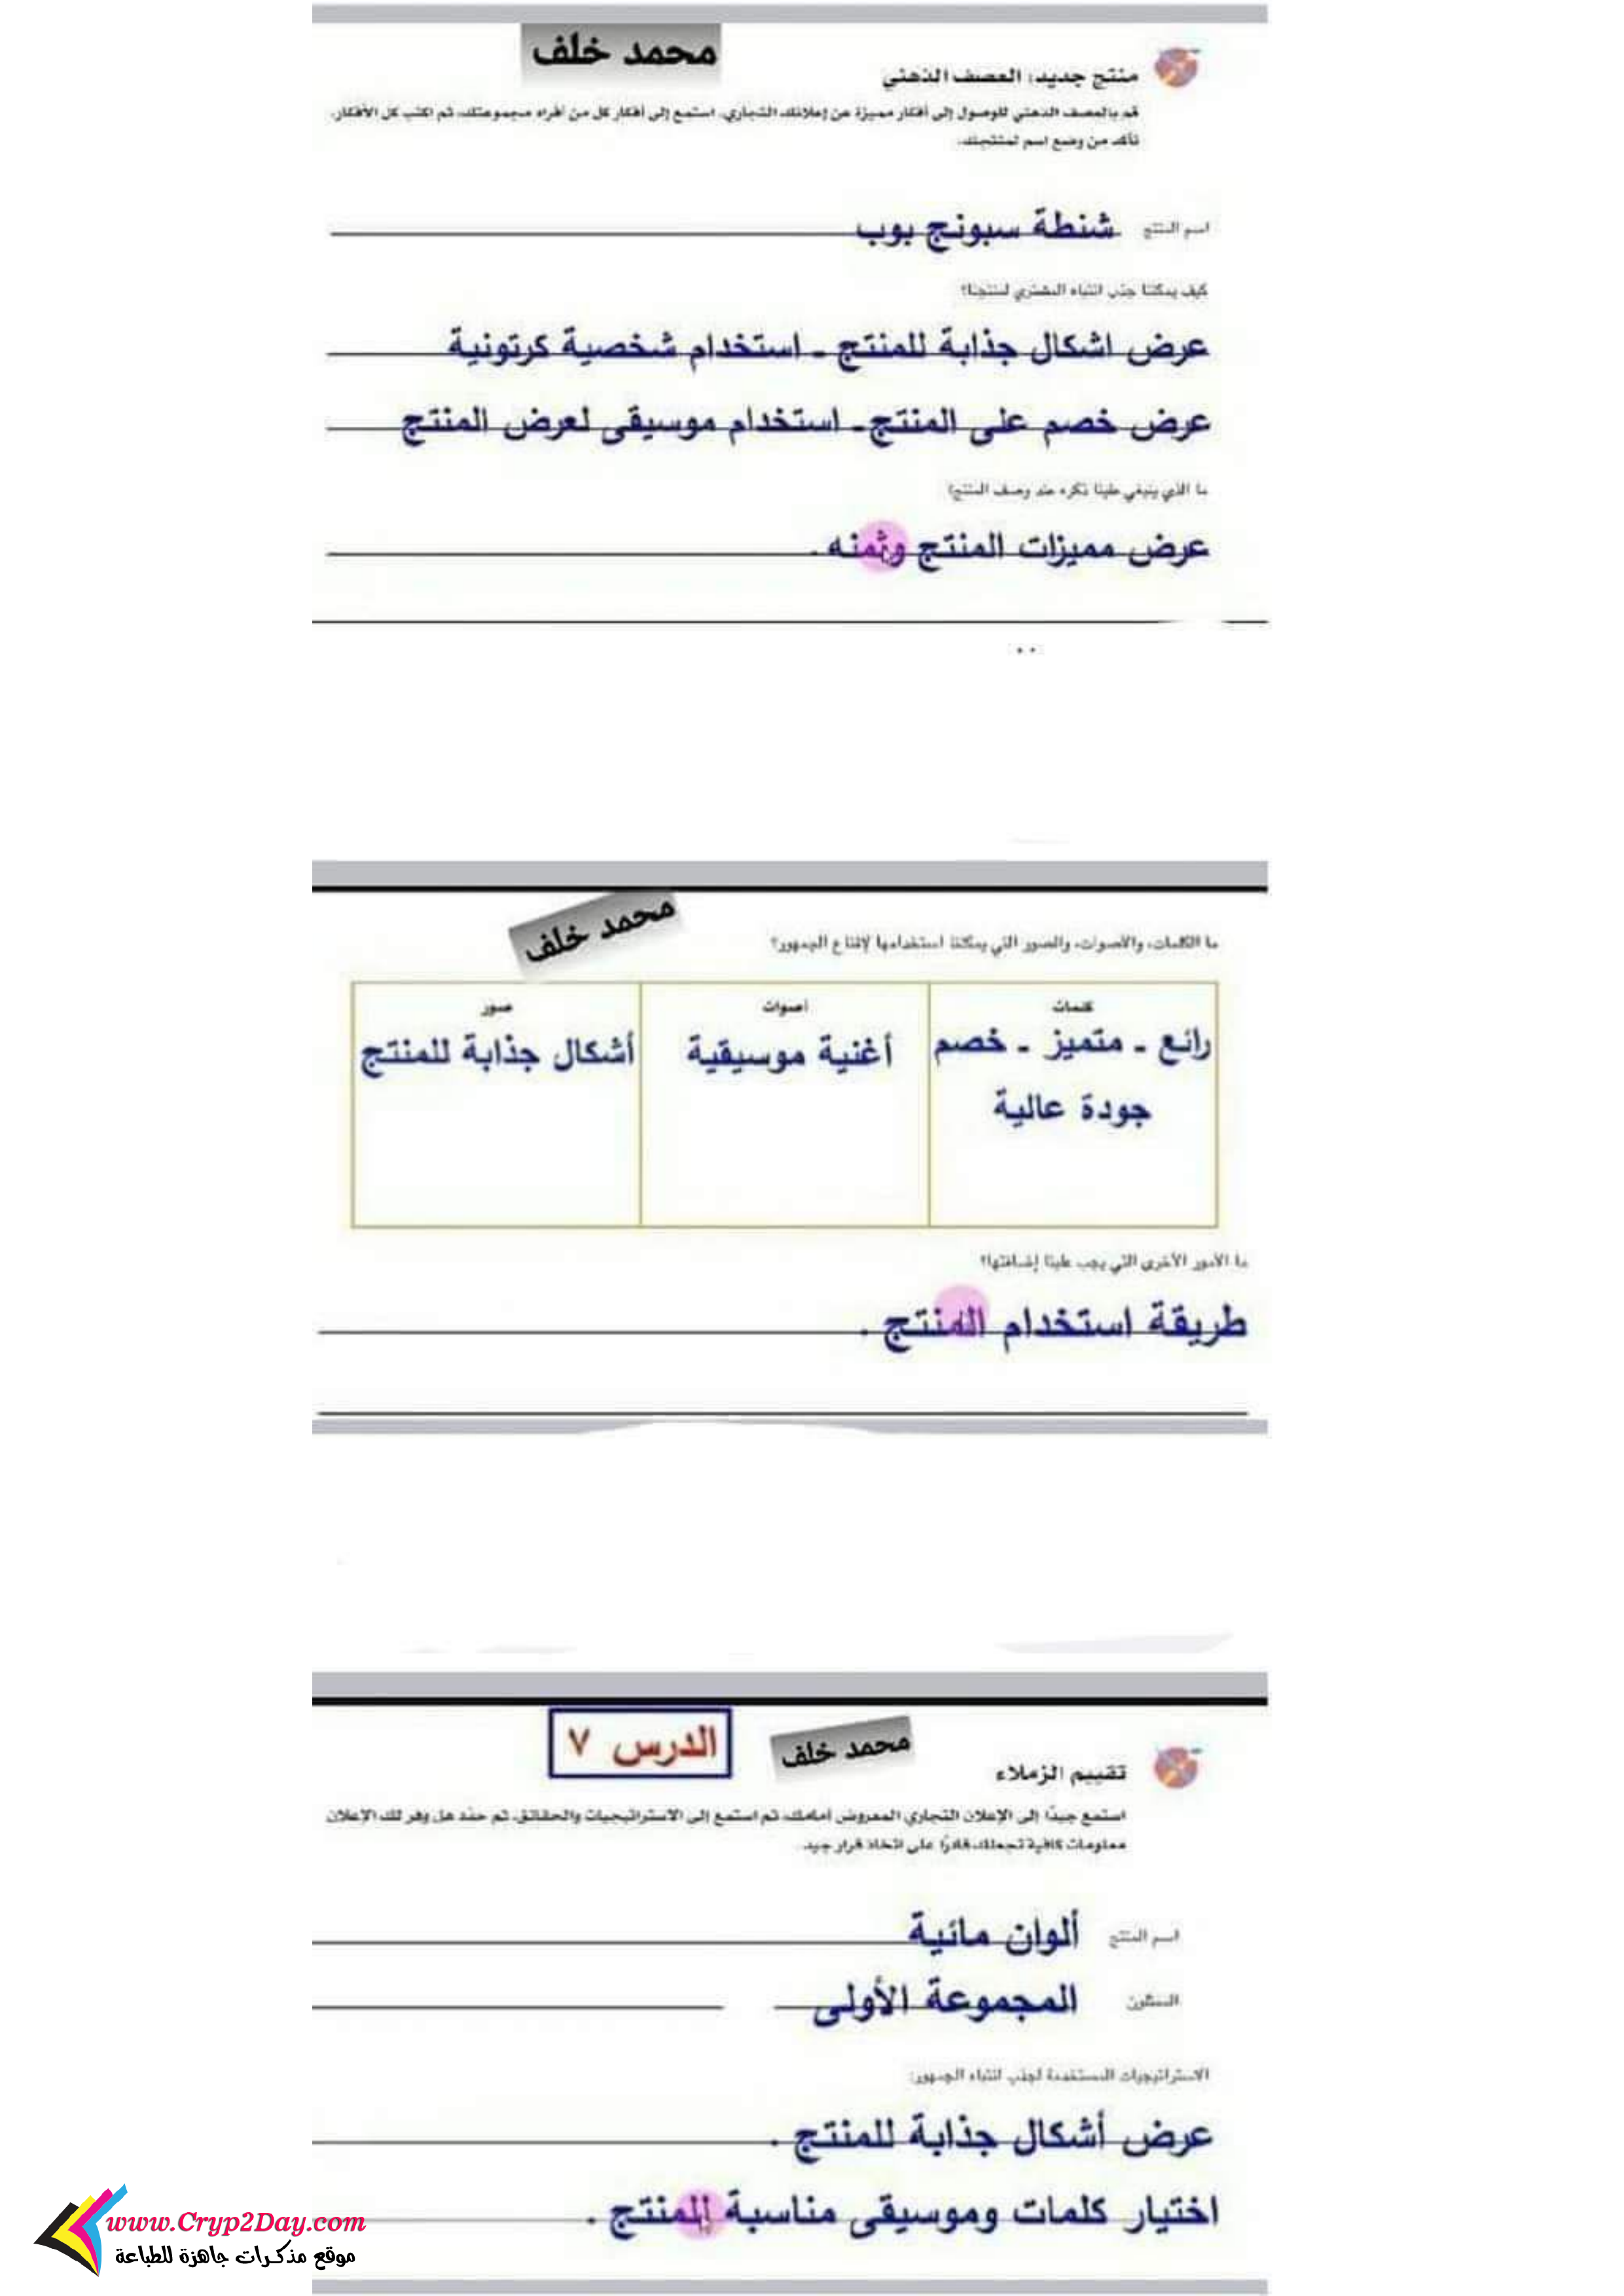 محمد خلف
منتج جديد: العصف الذهني
قم بالعصف الذهني للوصول إلى أفكار مميزة عن إعلانك التجاري. استمع إلى أفكار كل من أفراد مجموعتك، ثم اكتب كل الأفكار.
تأكد من وضع اسم لمنتجك.
اسم المنتج شنطة سبونج بوب
كيف يمكننا جذب انتباه المشتري لمنتجنا؟
عرض اشكال جذابة للمنتج - استخدام شخصية كرتونية
عرض خصم على المنتج - استخدام موسيقى لعرض المنتج
ما الذي ينبغي علينا ذكره عند وصف المنتج؟
عرض مميزات المنتج وثمنه .
محمد خلف
ما الكلمات، والأصوات، والصور التي يمكننا استخدامها لإقناع الجمهور؟
كلمات أصوات صور
رائع - متميز - خصم أغنية موسيقية أشكال جذابة للمنتج
جودة عالية
ما الأمور الأخرى التي يجب علينا إضافتها؟
طريقة استخدام المنتج .
الدرس ٧
محمد خلف
تقييم الزملاء
استمع جيدًا إلى الإعلان التجاري المعروض أمامك، ثم استمع إلى الاستراتيجيات والحقائق، ثم حدد هل وفر لك الإعلان
معلومات كافية تجعلك قادرًا على اتخاذ قرار جيد.
اسم المنتج ألوان مائية
الممثلون المجموعة الأولى
الاستراتيجيات المستخدمة لجذب انتباه الجمهور:
عرض أشكال جذابة للمنتج .
اختيار كلمات وموسيقى مناسبة للمنتج .
www.Cryp2Day.com
موقع مذكرات جاهزة للطباعة